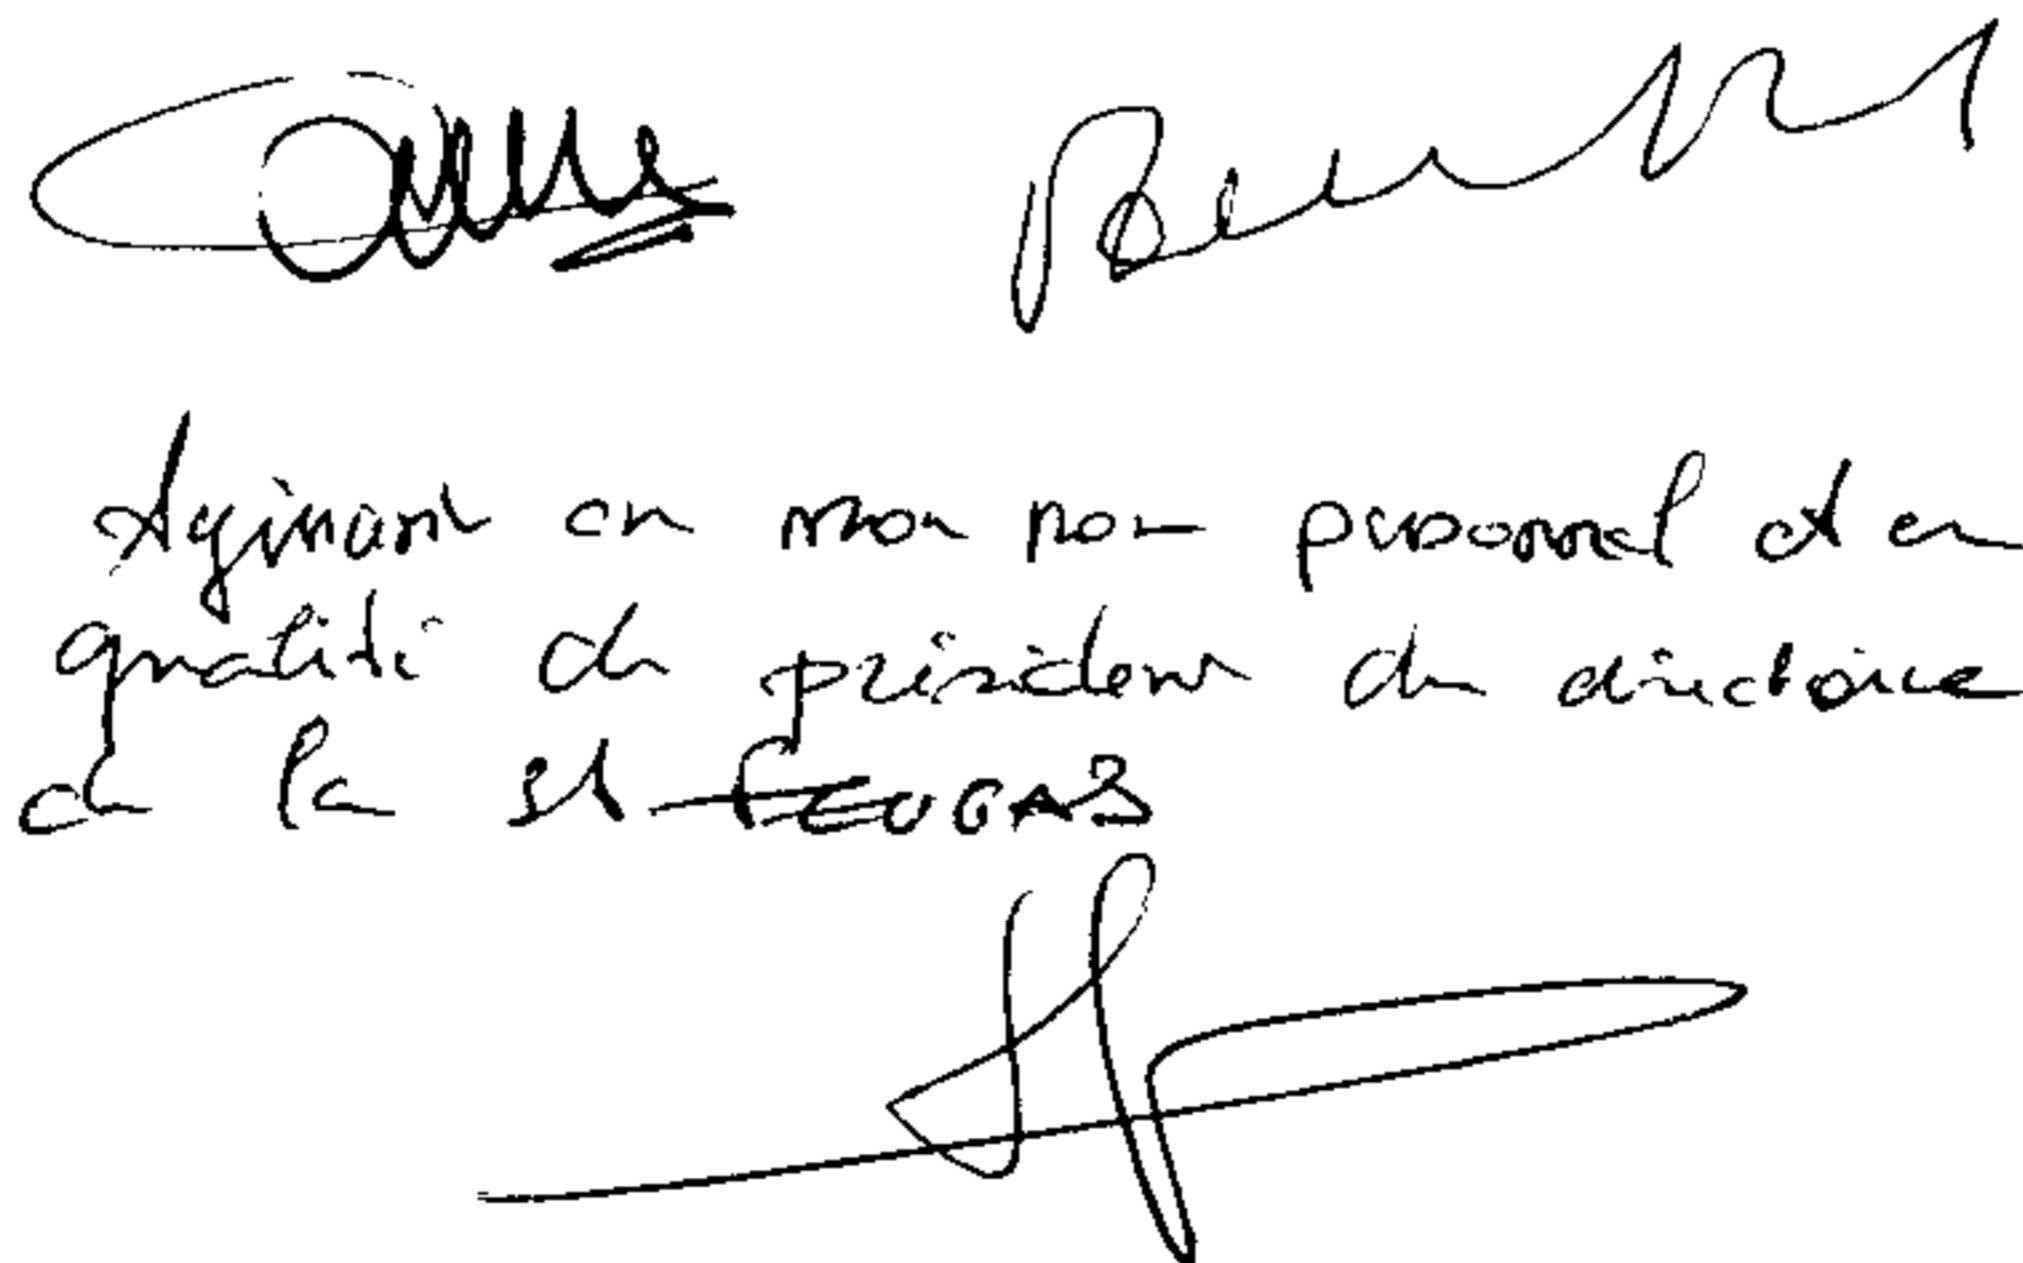 Agissant en mon nom personnel et en
qualité de président du directoire
de la st FEUGAS